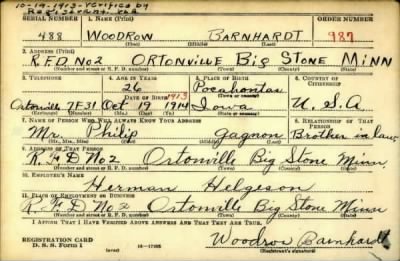 10-19-1913-Verified by
Registrant.
SERIAL NUMBER 1. NAME (Print) ORDER NUMBER
488 WOODROW BARNHARDT 987
(First) (Middle) (Last)
2. ADDRESS (Print)
R.F.D. No 2 ORTONVILLE BIG STONE MINN
(Number and street or R. F. D. number) (Town) (County) (State)
3. TELEPHONE 4. AGE IN YEARS 5. PLACE OF BIRTH 6. COUNTRY OF CITIZENSHIP
26 Pocahontas
DATE OF BIRTH 1913 (Town or county)
Ortonville 7F31 Oct 19 1914 Iowa U.S.A
(Exchange) (Number) (Mo.) (Day) (Yr.) (State or country)
7. NAME OF PERSON WHO WILL ALWAYS KNOW YOUR ADDRESS 8. RELATIONSHIP OF THAT PERSON
Mr. Philip Gagnon Brother in law
(Mr., Mrs., Miss) (First) (Middle) (Last)
9. ADDRESS OF THAT PERSON
R.F.D No 2 Ortonville Big Stone Minn
(Number and street or R. F. D. number) (Town) (County) (State)
10. EMPLOYER'S NAME
Herman Helgeson
11. PLACE OF EMPLOYMENT OR BUSINESS
R.F.D No 2 Ortonville Big Stone Minn
(Number and street or R. F. D. number) (Town) (County) (State)
I AFFIRM THAT I HAVE VERIFIED ABOVE ANSWERS AND THAT THEY ARE TRUE.
REGISTRATION CARD
D. S. S. Form 1 16-17105 Woodrow Barnhardt
(Registrant's signature)